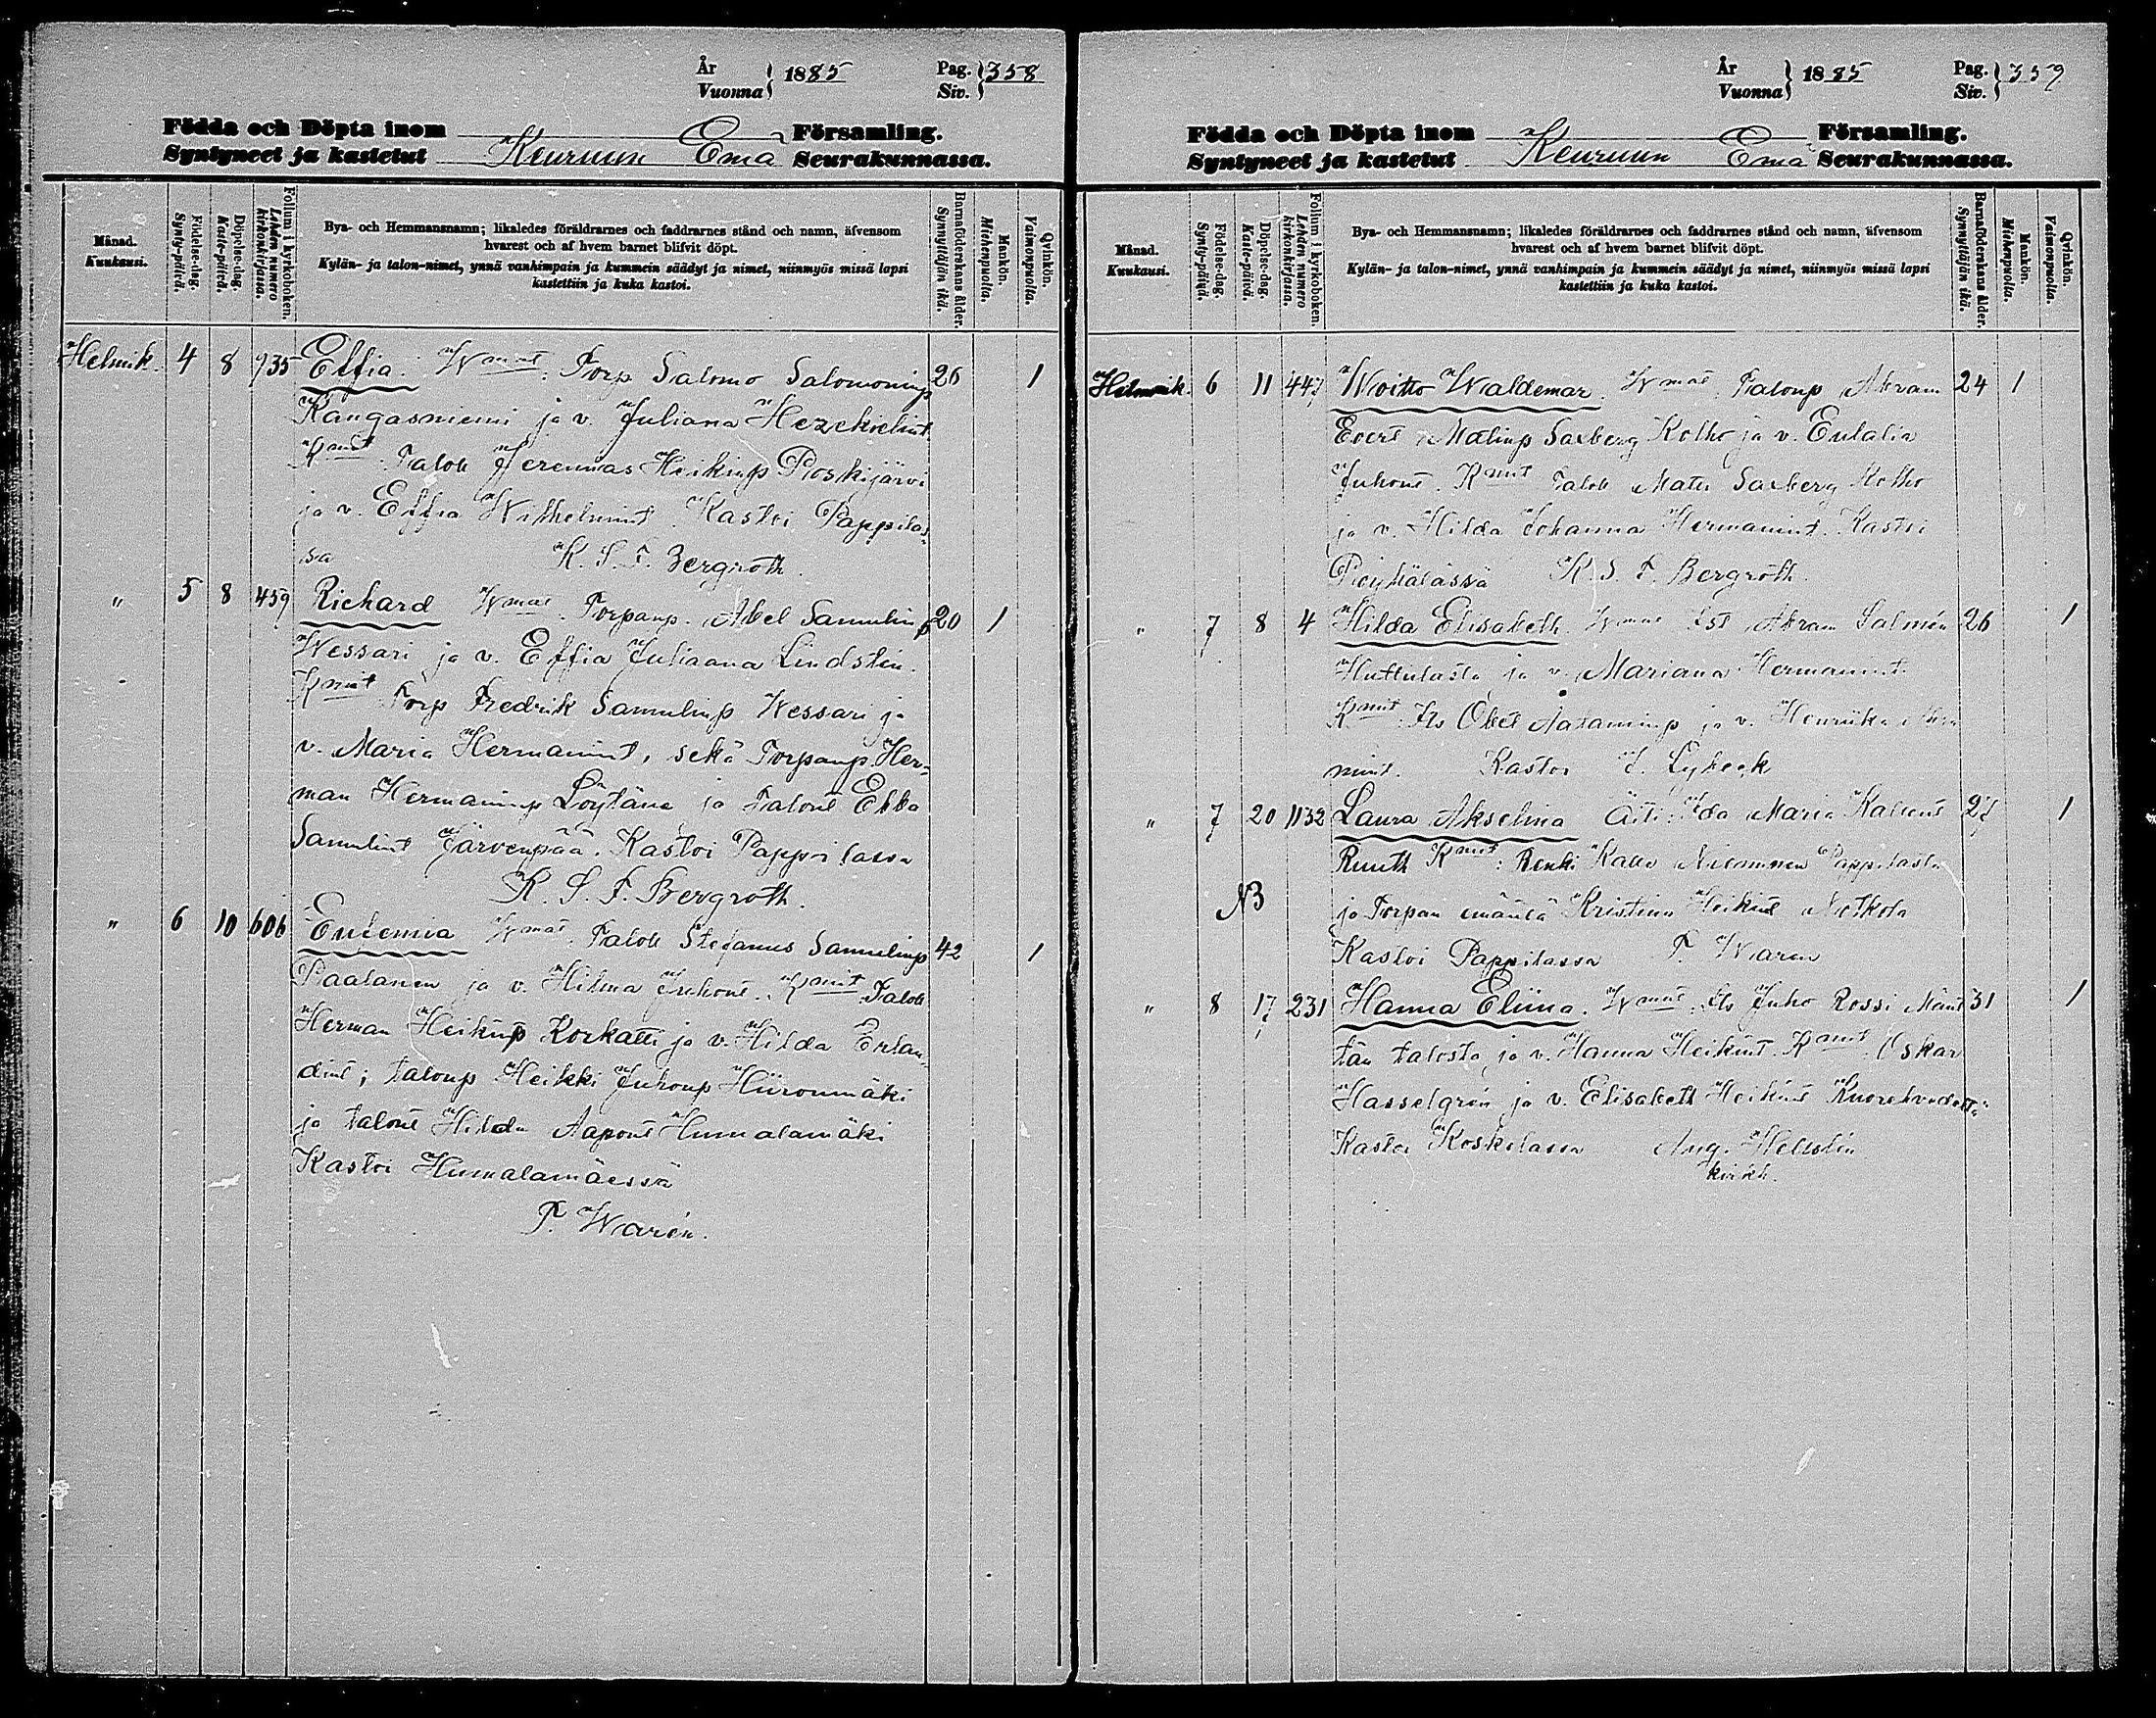 År
Vuonna } 1885 Pag.
Siv. } 358
Födda och Döpta inom Församling.
Syntyneet ja kastetut Keuruun Emä Seurakunnassa.
Månad.
Kuukausi.
Födelse-dag.
Synty-päivä.
Döpelse-dag.
Kaste-päivä.
Folium i kyrkoboken.
Lehden numero
kirkonkirjassa.
Bya- och Hemmansnamn; likaledes föräldrarnes och faddrarnes stånd och namn, äfvensom
hvarest och af hvem barnet blifvit döpt.
Kylän- ja talon-nimet, ynnä vanhimpain ja kummein säädyt ja nimet, niinmyös missä lapsi
kastettiin ja kuka kastoi.
Barnaföderskans ålder.
Synnyttäjän ikä.
Mankön.
Miehenpuolia.
Qvinkön.
Vaimonpuolia.
Helmik. 4 8 935 Effia. Wmat: Torp Salomo Salomoninp 26 1
Kangasniemi ja v. Juliana Hezekielint
Kmit Talol Jeremias Heikinp Poskijärvi
ja v. Effia Wilhelmint. Kastoi Pappilas-
sa K. S. F. Bergroth.
" 5 8 459 Richard Wmat. Torpanp. Abel Samulinp 20 1
Wessari ja v. Effia Juliaana Lindstén.
Kmit Torp Fredrik Samulinp Wessari ja
v. Maria Hermanint, sekä Torpanp. Her-
man Hermaninp Löytäne ja Talont Ebba
Samulint Järvenpää. Kastoi Pappilassa
K. S. F. Bergroth.
" 6 10 606 Eufemia Wmat. Talol Stefanus Samulinp 42 1
Paalanen ja v. Hilma Juhont. Kmit Talol
Herman Heikinp Korkatti ja v. Hilda Erlan-
dint; taloup Heikki Juhonp Hiironmäki
ja talont Hilda Aapont Humalamäki
Kastoi Humalamäessä
F. Warén.
År
Vuonna } 1885 Pag.
Siv. } 359
Födda och Döpta inom Församling.
Syntyneet ja kastetut Keuruun Emä Seurakunnassa.
Månad.
Kuukausi.
Födelse-dag.
Synty-päivä.
Döpelse-dag.
Kaste-päivä.
Folium i kyrkoboken.
Lehden numero
kirkonkirjassa.
Bya- och Hemmansnamn; likaledes föräldrarnes och faddrarnes stånd och namn, äfvensom
hvarest och af hvem barnet blifvit döpt.
Kylän- ja talon-nimet, ynnä vanhimpain ja kummein säädyt ja nimet, niinmyös missä lapsi
kastettiin ja kuka kastoi.
Barnaföderskans ålder.
Synnyttäjän ikä.
Mankön.
Miehenpuolia.
Qvinkön.
Vaimonpuolia.
Helmik. 6 11 447 Woitto Waldemar. Wmat. Talonp Abram 24 1
Evert Matinp Saxberg Kolho ja v. Eulalia
Juhont. Kmit Talol Mats Saxberg Kolho
ja v. Hilda Johanna Hermanint. Kastoi
Pöyhälässä K. S. F. Bergroth.
" 7 8 4 Hilda Elisabeth. Wmat Abram Salmén 26 1
Huttulasta ja v. Mariana Hermanint
Kmit: Its Obet Aataminp ja v. Henriika
mint. Kastoi J. Lybeck
" 7 20 1132 Laura Akselina Äiti: Ida Maria Kallent 27 1
Ruuth Kmit: Renki Kalle Nieminen Pappilasta
NB ja Torpan emäntä Kristina Heikint Notkola
Kastoi Pappilassa F. Warén
" 8 17 231 Hanna Eliina. Wmat: Its Juho Rossi Mänt 31 1
tän talosta ja v. Hanna Heikint. Kmit: Oskar
Hasselgrén ja v. Elisabeth Heikint
Kastoi Koskelassa Aug.
kirkh.